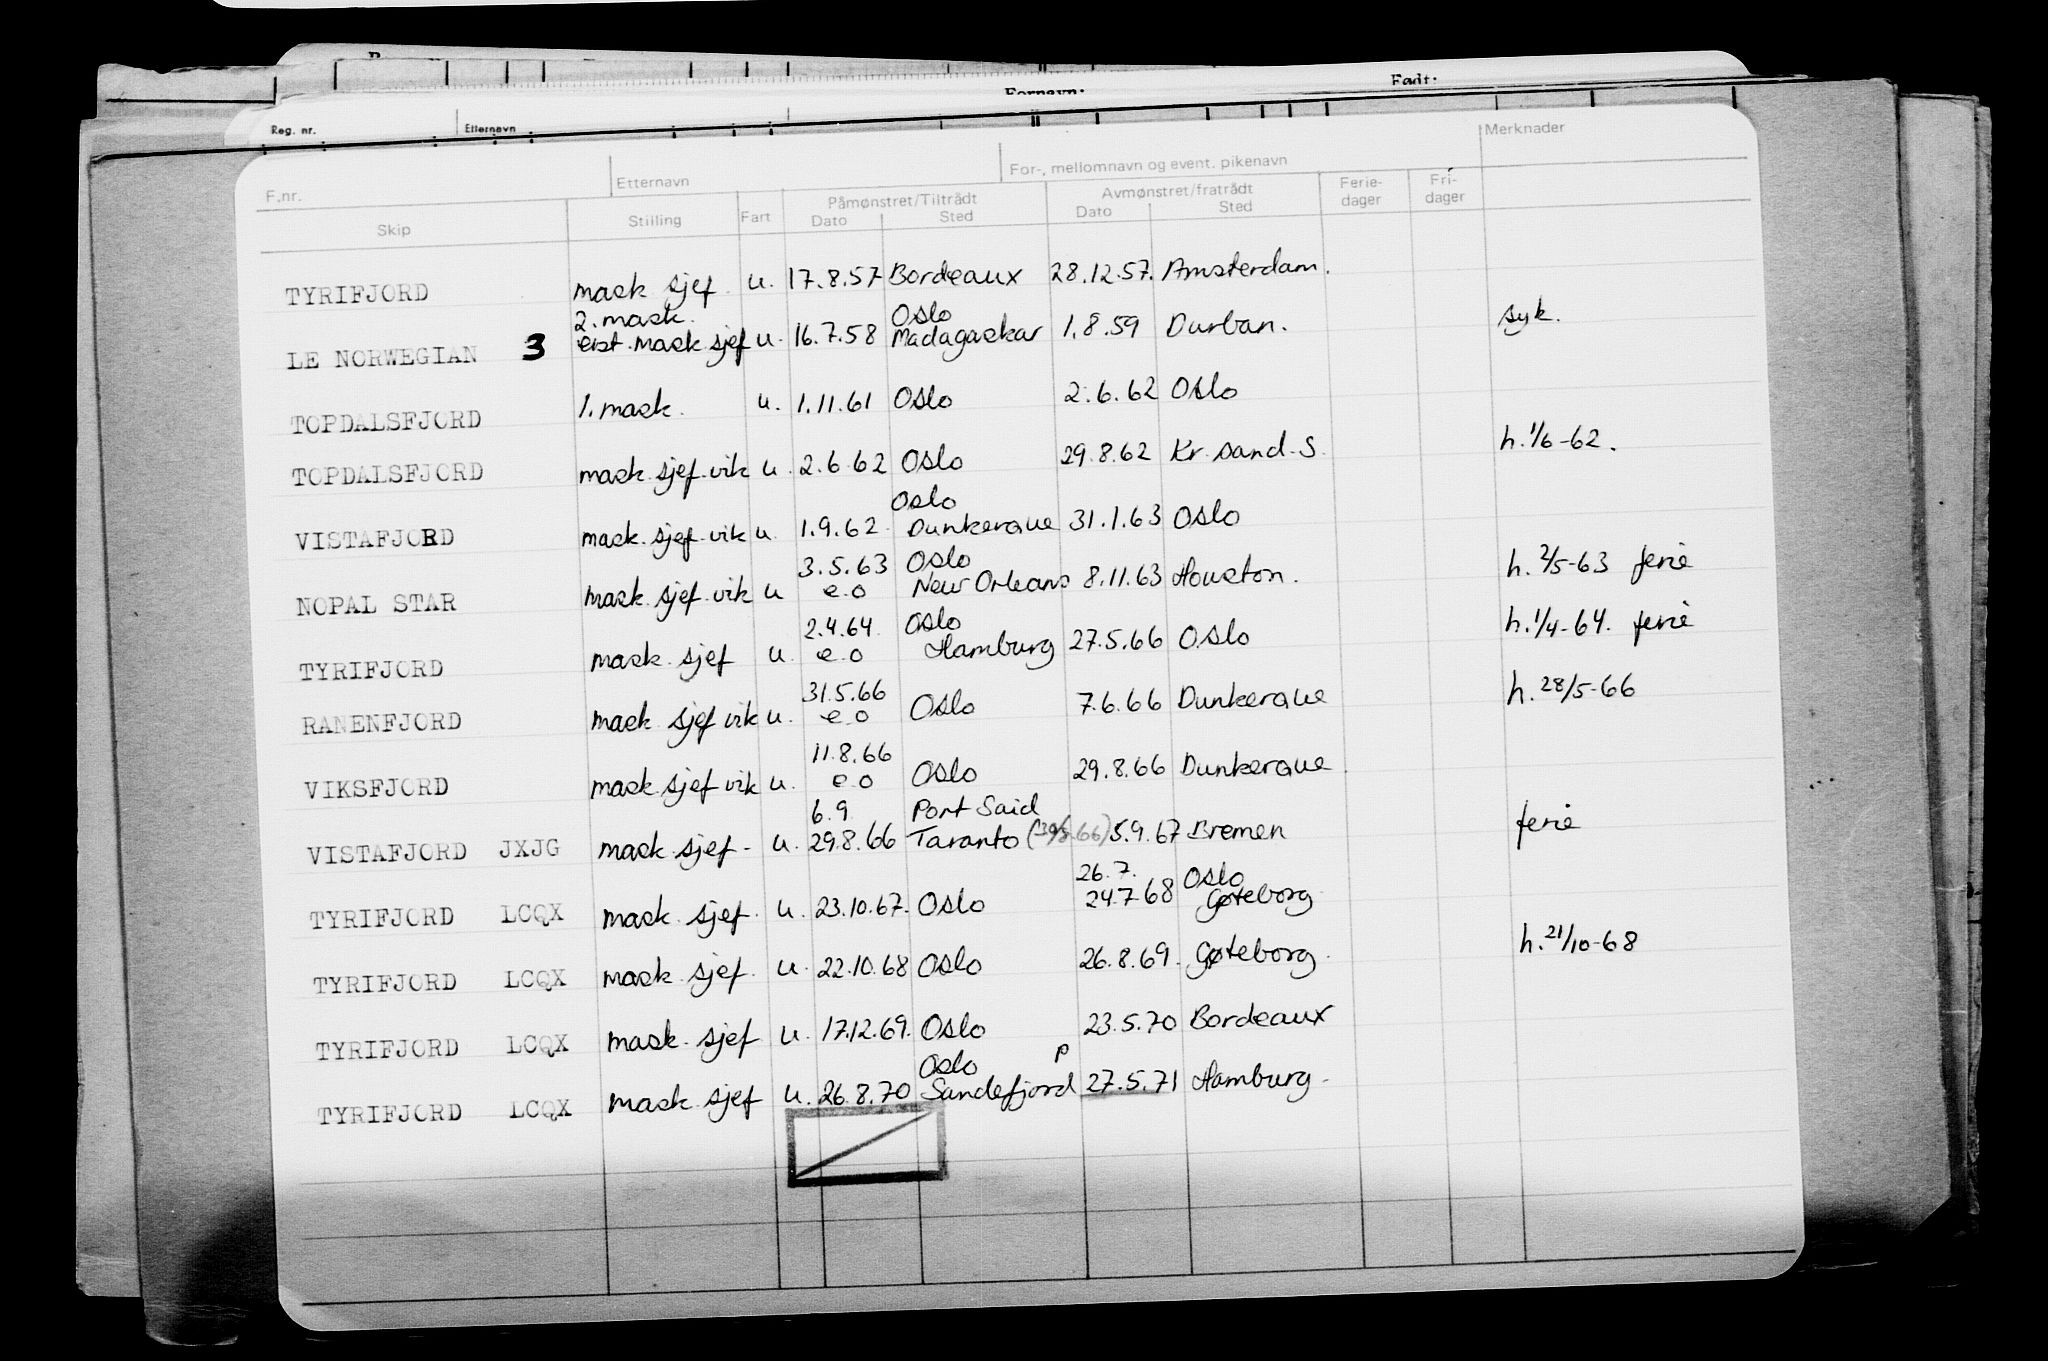 Født:
Fornavn:
Reg. nr. Etternavn
F.nr. Etternavn For-, mellomnavn og event. pikenavn Merknader
Skip Stilling Fart Påmønstret/Tiltrådt Avmønstret/fratrådt Ferie- Fri-
Dato Sted Dato Sted dager dager
TYRIFJORD mask sjef u. 17.8.57 Bordeaux 28.12.57. Amsterdam.
2. mask. Oslo
LE NORWEGIAN 3 mask sjef u. 16.7.58 Madagaskar 1.8.59 Durban. syk.
TOPDALSFJORD 1. mask. u. 1.11.61 Oslo 2.6.62 Oslo
TOPDALSFJORD mask. sjef. vik u. 2.6.62 Oslo 29.8.62 Kr. sand. S. h. 1/6-62.
Oslo
VISTAFJORD mask. sjef. vik u. 1.9.62 Dunkerque 31.1.63 Oslo
3.5.63 Oslo
NOPAL STAR mask. sjef. vik u e.o New Orleans 8.11.63 Houston. h. 2/5-63 ferie
2.4.64. Oslo
TYRIFJORD mask. sjef u. e.o Hamburg 27.5.66 Oslo h. 1/4-64. ferie
31.5.66
RANENFJORD mask. sjef vik u. e.o Oslo 7.6.66 Dunkerque h. 28/5-66
11.8.66
VIKSFJORD mask. sjef vik u. e.o Oslo 29.8.66 Dunkerque
6.9. Port Said
VISTAFJORD JXJG mask sjef - u. 29.8.66 Taranto 5.9.67 Bremen ferie
26.7. Oslo
TYRIFJORD LCQX mask. sjef. u. 23.10.67. Oslo 24.7.68 Gøteborg
TYRIFJORD LCQX mask sjef. u. 22.10.68 Oslo 26.8.69. Gøteborg. h. 21/10-68
TYRIFJORD LCQX mask. sjef u. 17.12.69. Oslo 23.5.70 Bordeaux
Oslo P
TYRIFJORD LCQX mask sjef u. 26.8.70 Sandefjord 27.5.71 Hamburg -